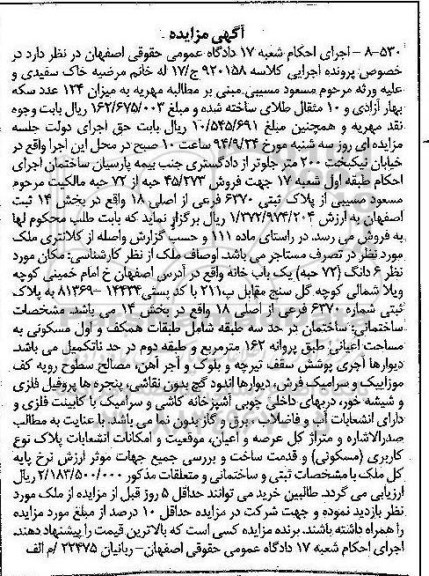 آگهی مزایده
۸-۵۳۰ - اجرای احکام شعبه ۱۷ دادگاه عمومی حقوقی اصفهان در نظر دارد در
خصوص پرونده اجرایی کلاسه ۹۲۰۱۵۸ ج/۱۷ له خانم مرضیه خاک سفیدی و
علیه ورثه مرحوم مسعود مسیبی مبنی بر مطالبه مهریه به میزان ۱۲۴ عدد سکه
بهار آزادی و ۱۰ مثقال طلای ساخته شده و مبلغ ۱۶۲/۶۷۵/۰۰۳ ریال بابت وجوه
نقد مهریه و همچنین مبلغ ۱۰/۵۴۵/۶۹۱ ریال بابت حق اجرای دولت جلسه
مزایده ای روز سه شنبه مورخ ۹۴/۹/۲۴ ساعت ۱۰ صبح در محل این اجرا واقع در
خیابان نیکبخت ۲۰۰ متر جلوتر از دادگستری جنب بیمه پارسیان ساختمان اجرای
احکام طبقه اول شعبه ۱۷ جهت فروش ۴۵/۲۷۳ حبه از ۷۲ حبه مالکیت مرحوم
مسعود مسیبی از پلاک ثبتی ۶۳۷۰ فرعی از اصلی ۱۸ واقع در بخش ۱۴ ثبت
اصفهان به ارزش ۱/۳۷۲/۹۷۴/۲۰۴ ریال برگزار نماید که بابت طلب محکوم لها
به فروش می رسد. در راستای ماده ۱۱۱ و حسب گزارش واصله از کلانتری ملک
مورد نظر در تصرف مستاجر می باشد. اوصاف ملک از نظر کارشناسی: مکان مورد
نظر ۶ دانگ (۷۲ حبه) یک باب خانه واقع در آدرس اصفهان خ امام خمینی کوچه
ویلا شمالی کوچه گل سنج مقابل پ۲۱۱ با کد پستی ۱۴۴۳۴-۸۱۳۶۹ به پلاک
ثبتی شماره ۶۳۷۰ فرعی از اصلی ۱۸ واقع در بخش ۱۴ می باشد. مشخصات
ساختمانی: ساختمان در حد سه طبقه شامل طبقات همکف و اول مسکونی به
مساحت اعیانی طبق پروانه ۱۶۲ مترمربع و طبقه دوم در حد ناتکمیل می باشد.
دیوارها آجری پوشش سقف تیرچه و بلوک و آجر آهن، مصالح سطوح رویه کف
موزاییک و سرامیک فرش، دیوارها اندود گچ بدون نقاشی، پنجره ها پروفیل فلزی
و شیشه خور، دربهای داخلی چوبی آشپزخانه کاشی و سرامیک با کابینت فلزی و
دارای انشعابات آب و فاضلاب، برق و گاز بدون نما می باشد. با عنایت به مطالب
صدرالاشاره و متراژ کل عرصه و اعیان، موقعیت و امکانات انشعابات پلاک نوع
کاربری (مسکونی) و قدمت ساخت و بررسی جمیع جهات موثر ارزش نرخ پایه
کل ملک با مشخصات ثبتی و ساختمانی و متعلقات مذکور ۲/۱۸۳/۵۰۰/۰۰۰ ریال
ارزیابی می گردد. طالبین خرید می توانند حداقل ۵ روز قبل از مزایده از ملک مورد
نظر بازدید نموده و جهت شرکت در مزایده حداقل ۱۰ درصد از مبلغ مورد مزایده
را همراه داشته باشند. برنده مزایده کسی است که بالاترین قیمت را پیشنهاد دهند.
اجرای احکام شعبه ۱۷ دادگاه عمومی حقوقی اصفهان- ربانیان ۲۲۴۷۵ /م الف